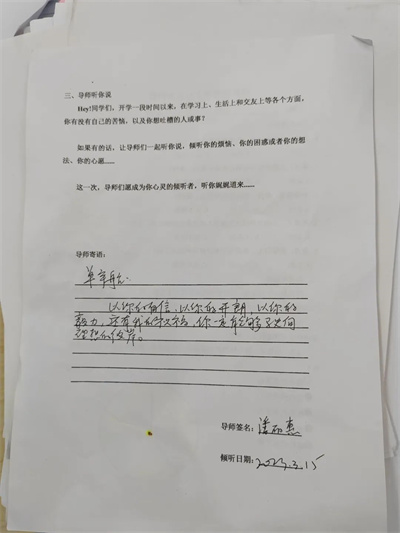 三、导师听你说
Hey!同学们，开学一段时间以来，在学习上、生活上和交友上等各个方面，
你有没有自己的苦恼，以及你想吐槽的人或事？
如果有的话，让导师们一起听你说，倾听你的烦恼、你的困惑或者你的想
法、你的心愿……
这一次，导师们愿成为你心灵的倾听者，听你娓娓道来……
导师寄语：
单宇航：
以你的自信，以你的开朗，以你的
毅力，还有我的祝福，你一定能够驶向
理想的彼岸。
导师签名：潘丽惠
倾听日期：2023.3.15